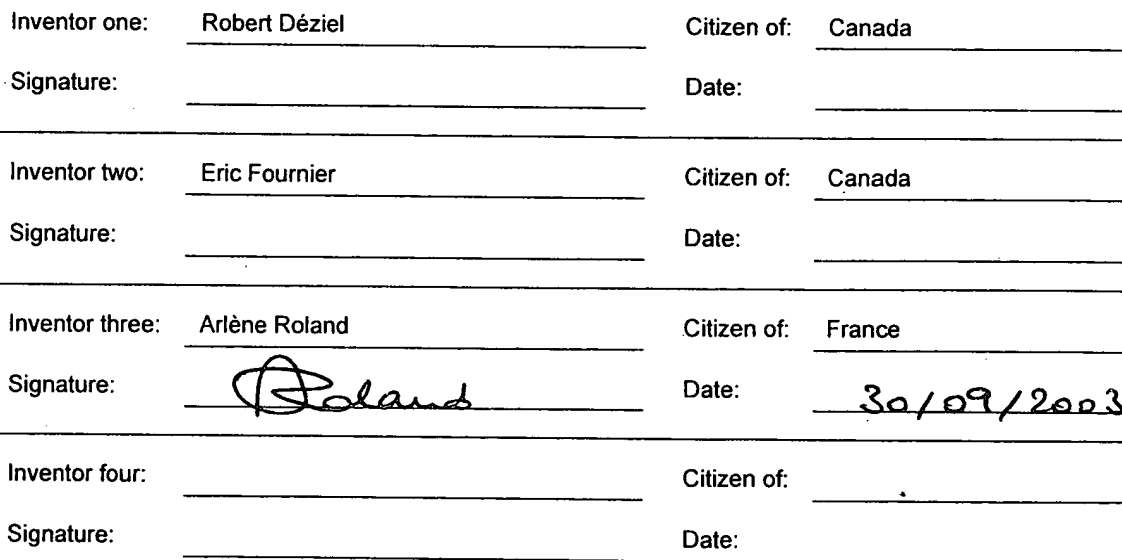 Inventor one: Robert Déziel Citizen of: Canada
Signature: Date:
Inventor two: Eric Fournier Citizen of: Canada
Signature: Date:
Inventor three: Arlène Roland Citizen of: France
Signature: ARoland Date: 30/09/2003
Inventor four: Citizen of:
Signature: Date: